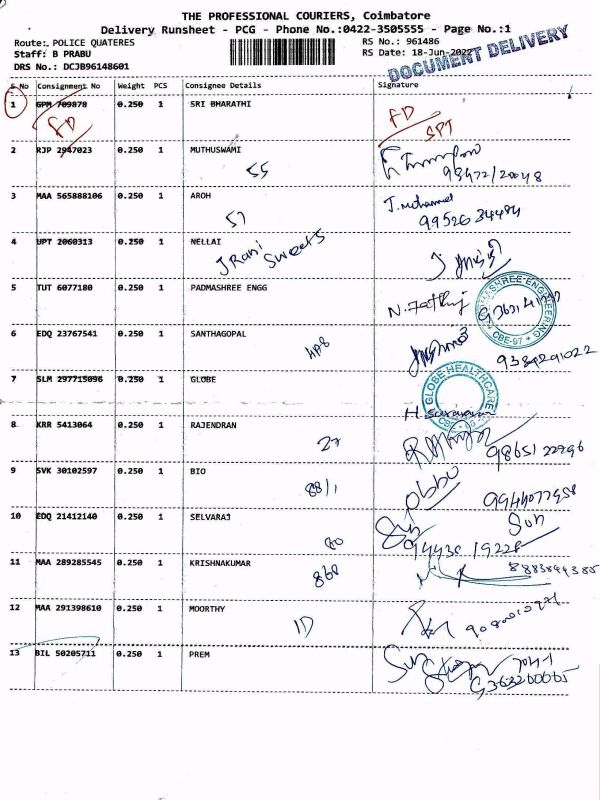 THE PROFESSIONAL COURIERS, Coimbatore
Delivery Runsheet - PCG - Phone No.:0422-3505555 - Page No.:1
Route: POLICE QUATERES RS No.: 961486
Staff: B PRABU RS Date: 18-Jun-2022
DRS No.: DCJB96148601
DOCUMENT DELIVERY
S No Consignment No Weight PCS Consignee Details Signature
1 GPM 709878 0.250 1 SRI BHARATHI
FD FD
SPT
2 RJP 2947023 0.250 1 MUTHUSWAMI
55
3 MAA 565888106 0.250 1 AROH J. Mohammed
57 9952634484
4 UPT 2060313 0.250 1 NELLAI
J Rani Sweets
5 TUT 6077180 0.250 1 PADMASHREE ENGG
CBE-97
6 EDQ 23767541 0.250 1 SANTHAGOPAL
9384291022
7 SLM 297715096 0.250 1 GLOBE
GLOBE HEALTHCARE
8 KRR 5413064 0.250 1 RAJENDRAN
27 9865122796
9 SVK 30102597 0.250 1 BIO
88/1 9944077958
10 EDQ 21412140 0.250 1 SELVARAJ
80
11 MAA 289285545 0.250 1 KRISHNAKUMAR
868
12 MAA 291398610 0.250 1 MOORTHY
13 BIL 50205711 0.250 1 PREM